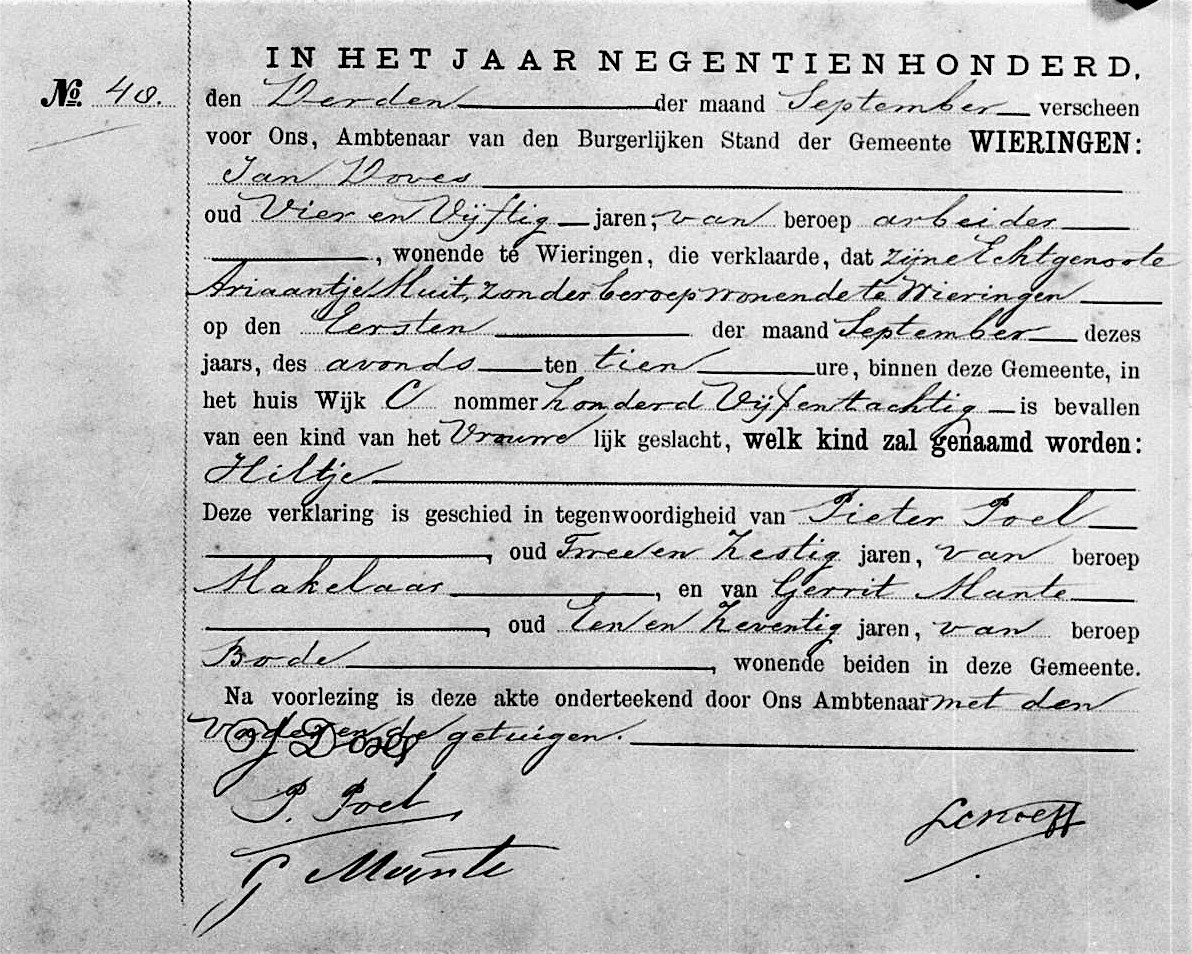 IN HET JAAR NEGENTIENHONDERD,
No. 40. den Derden der maand September verscheen
voor Ons, Ambtenaar van den Burgerlijken Stand der Gemeente WIERINGEN:
Jan Doves
oud Vier en Vijftig jaren, van beroep arbeider
, wonende te Wieringen, die verklaarde, dat zijne Echtgenoote
Ariaantje Muit, zonder beroep wonende te Wieringen
op den Eersten der maand September dezes
jaars, des avonds ten tien ure, binnen deze Gemeente, in
het huis Wijk C nommer honderd Vijfentachtig is bevallen
van een kind van het Vrouwe lijk geslacht, welk kind zal genaamd worden:
Hiltje
Deze verklaring is geschied in tegenwoordigheid van Pieter Poel
, oud Twee en Zestig jaren, van beroep
Makelaar, en van Gerrit Mante
, oud Een en Zeventig jaren, van beroep
Bode, wonende beiden in deze Gemeente.
Na voorlezing is deze akte onderteekend door Ons Ambtenaar met den
Vader en de getuigen.
J Doves
P. Poel
G Mante